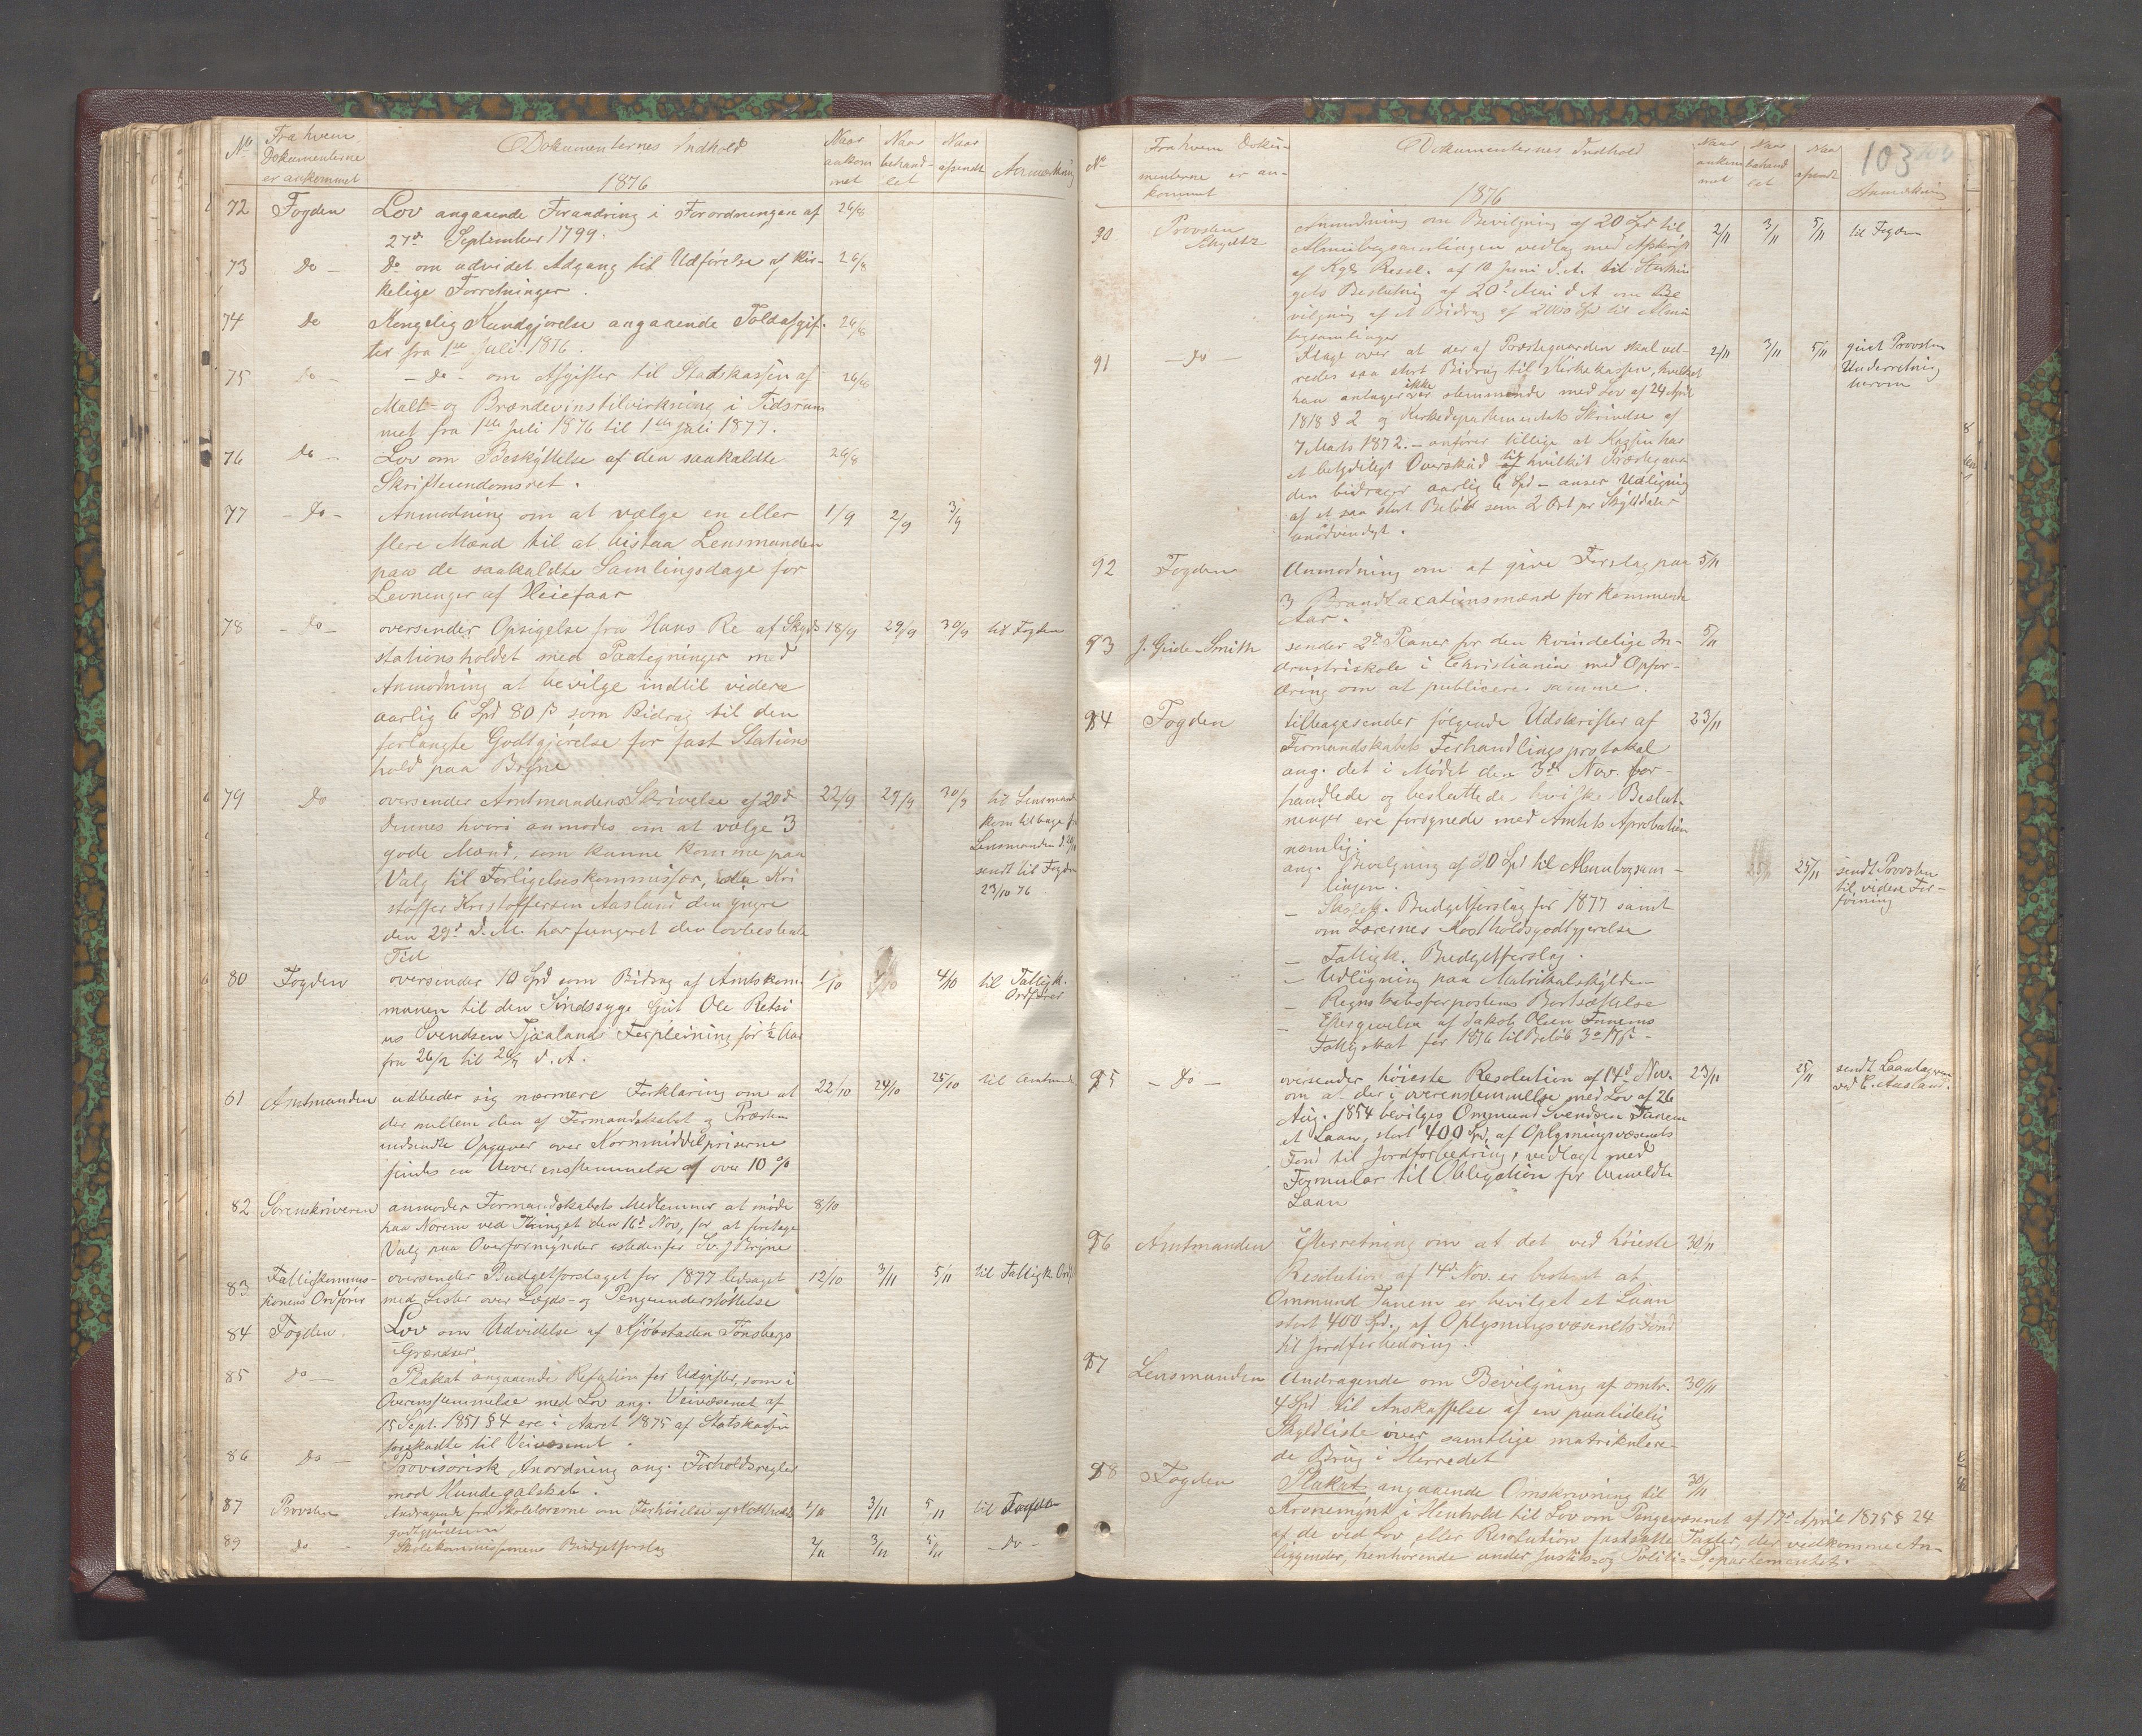 No Fra hvem Dokumenterne er ankommet Dokumenternes Indhold Naar ankommet Naar behandlet Naar afsendt Anmærkning
1876
72 Fogden Lov angaaende Forandring i Forordningen af 26/8
27de September 1799.
73 Do - Do om udvidet Adgang til Udførelse af kir- 26/8
kelige Forretninger.
74 Do Kongelig Kundgjørelse angaaende Toldafgif- 26/8
ter fra 1ste Juli 1876.
75 Do - - Do - om Afgifter til Statskassen af 26/8
Malt- og Brændevinstilvirkning i Tidsrum
met fra 1ste Juli 1876 til 1ste Juli 1877.
76 Do - Lov om Beskyttelse af den saakaldte 26/8
Skrifteiendomsret.
77 - Do - Anmodning om at vælge en eller 1/9 2/9 3/9
flere Mænd til at bistaa Lensmanden
paa de saakaldte Samlingsdage for
Levninger af Heiefaar
78 - Do - oversender Opsigelse fra Hans Re af Skyds 18/9 29/9 30/9 til Fogden
stationsholdet med Paategninger med
Anmodning at bevilge indtil videre
aarlig 6 Spd 80 β som Bidrag til den
forlangte Godtgjørelse for fast Stations
hold paa Bryne
79 Do oversender Amtmandens Skrivelse af 20de 22/9 29/9 30/9 til Lensmand
dennes hvori anmodes om at vælge 3 kom tilbage fr
gode Mænd, som kunne komme paa Lensmanden d
Valg til Forligelseskommissær, da Kri sendt til Fogden
stoffer Kristoffersen Aasland den yngre 23/10 76
den 29de d. M. har fungeret den lovbestemte
Tid
80 Fogden oversender 10 Spd som Bidrag af Amtskom 1/10 4/10 til Fattigk.
munen til den Sindssyge Gut Ole Retsi Ordfører
us Svendsen Tjaalands Forpleining for ½ Aar
fra 26/2 til 26/7 d. A.
81 Amtmanden udbeder sig nærmere Forklaring om at 22/10 24/10 25/10 til Amtmand
der mellem den af Formandskabet og Præsten
indsendte Opgaver over Kornmiddelpriserne
findes en Uoverensstemmelse af over 10 %
82 Sorenskriveren anmoder Formandskabets Medlemmer at møde 8/10
paa Norem ved Thinget den 16de Nov, for at foretage
Valg paa Overformynder istedenfor Sv. J Bryne
83 Fattigkommis- oversender Budgetforslaget for 1877 ledsaget 12/10 3/11 5/11 til Fattigk Ordf
sionens Ordfører med Lister over Lægds- og Pengeunderstøttelse
84 Fogden. Lov om Udvidelse af Kjøbstaden Tønsbergs
Grændser
85 Do - Plakat angaaende Refusion for Udgifter, som i
Overensstemmelse med Lov ang. Veivæsenet af
15 Sept. 1851 § 4 ere i Aaret 1875 af Statskassen
forskudte til Veivæsenet.
86 Do - Provisorisk Anordning ang. Forholdsregler
mod Hundegalskab.
87 Provsten Andragende fra Skolelærerne om Forhøielse af Kostholds 2/11 3/11 5/11 til Fogden
godtgjørelsen
89 Do - Skolekommissionens Budgetforslag 2/11 3/11 5/11 - Do -
No Fra hvem Dokumenterne er ankommet Dokumenternes Indhold Naar ankommet Naar behandlet Naar afsendt 103 Anmærkning
1876
90 Provsten Anmodning om Bevilgning af 20 Spd til 2/11 3/11 5/11 til Fogden
Schjøltz Almubogsamlingen vedlag med Afskrift
af Kgl. Resol. af 10 Juni d. A. til Storthin
gets Beslutnig af 20de Mai d A om Be
vilgning af et Bidrag af 2000 Spd til Almu
bogsamlinger
91 - Do Klage over at der af Præstegaarden skal ud- 2/11 3/11 5/11 givet Provsten
redes saa stort Bidrag til Kirkekassen, hvilket Underretning
han antager ikke var stemmende med Lov af 24 April herom
1818 § 2 og Kirkedepartementets Skrivelse af
7 Marts 1872. - anfører tillige at Kassen har
et betydeligt Overskud til hvilket Præstegaar
den bidrager aarlig 6 Spd - anser Udligning
af et saa stort Beløb som 2 Ort pr Skylddaler
unødvendigt.
92 Fogden Anmodning om at give Forslag paa 5/11
3 Brandtaxationsmænd for kommende
Aar.
93 J. Gude-Smith sender 2de Planer for den kvindelige In- 5/11
dustriskole i Christiania med Opfor-
dring om at publicere samme.
94 Fogden tilbagesender følgende Udskrifter af 23/11
Formandskabets Forhandlingsprotokol
ang. det i Mødet den 3de Nov. for-
handlede og besluttede hvilke Beslut-
ninger ere forsynede med Amtets Aprobation
nemlig:
ang. Bevilgning af 20 Spd til Almubogsam- 25/11 sendt Provsten
lingen. til videre For-
- Skolek. Budgetforslag for 1877 samt føining
om Lærernes Kostholdsgodtgjørelse
- Fattigk. Budgetforslag.
- Udligning paa Matrikulskylden
- Regnskabsførpostens Bortsættelse
- Eftergivelse af Jakob Olsen Tunems
Fattigskat for 1876 til Beløb
95 - Do - oversender høieste Resolution af 14de Nov. 23/11 25/11 sendt Laantageren
om at der i overensstemmelse med Lov af 26 ved C. Aasland.
Aug. 1854 bevilges Ommund Svendsen Tunem
et Laan, stort 400 Spd, af Oplysningsvæsenets
Fond til Jordforbedring, vedlagt med
Formular til Obligation for bemeldte
Laan
96 Amtmanden Efterretning om at det ved høieste 30/11
Resolution af 14de Nov. er bestemt at
Ommund Tunem er bevilget et Laan
stort 400 Spd. af Oplysningsvæsenets Fond
til Jordforbedring.
97 Lensmanden Andragende om Bevilgning af omtr. 30/11
4 Spd til Anskaffelse af en paalidelig
Skyldliste over samtlige matrikulere-
de Brug i Herredet
98 Fogden Plakat angaaende Omskrivning til 30/11
Kronemynt i Henhold til Lov om Pengevæsenet af 17de April 1875 § 24
af de ved Lov eller Resolution fastsatte Taxter, der vedkomme An-
liggender, henhørende under Justits- og Politi-Departementet.